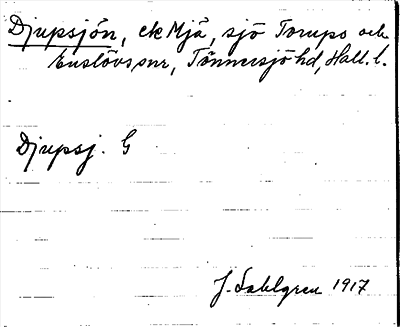 Djupsjön, ek Mjä, sjö Torups och
Enslövs snr, Tönnersjö hd, Hall. l.
Djupsj. G
J. Sahlgren 1917